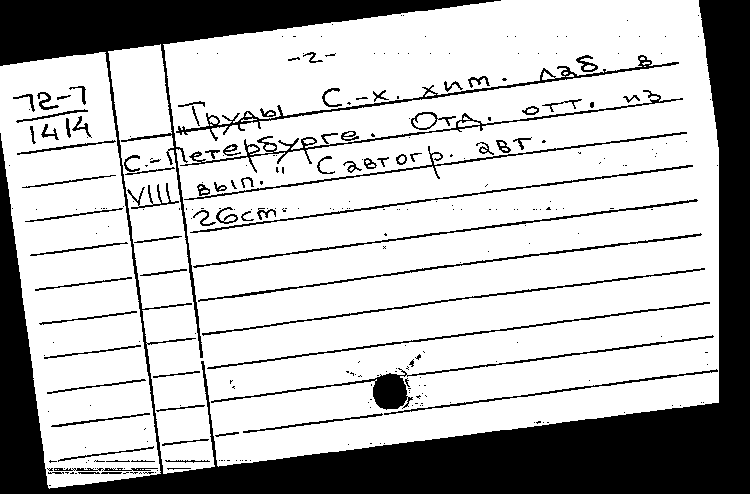 -2-
72-7
1414
„Труды С.-х. хим. лаб. в
С.-Петербурге. Отд. отт. из
VIII вып." С автогр. авт.
26 ст.